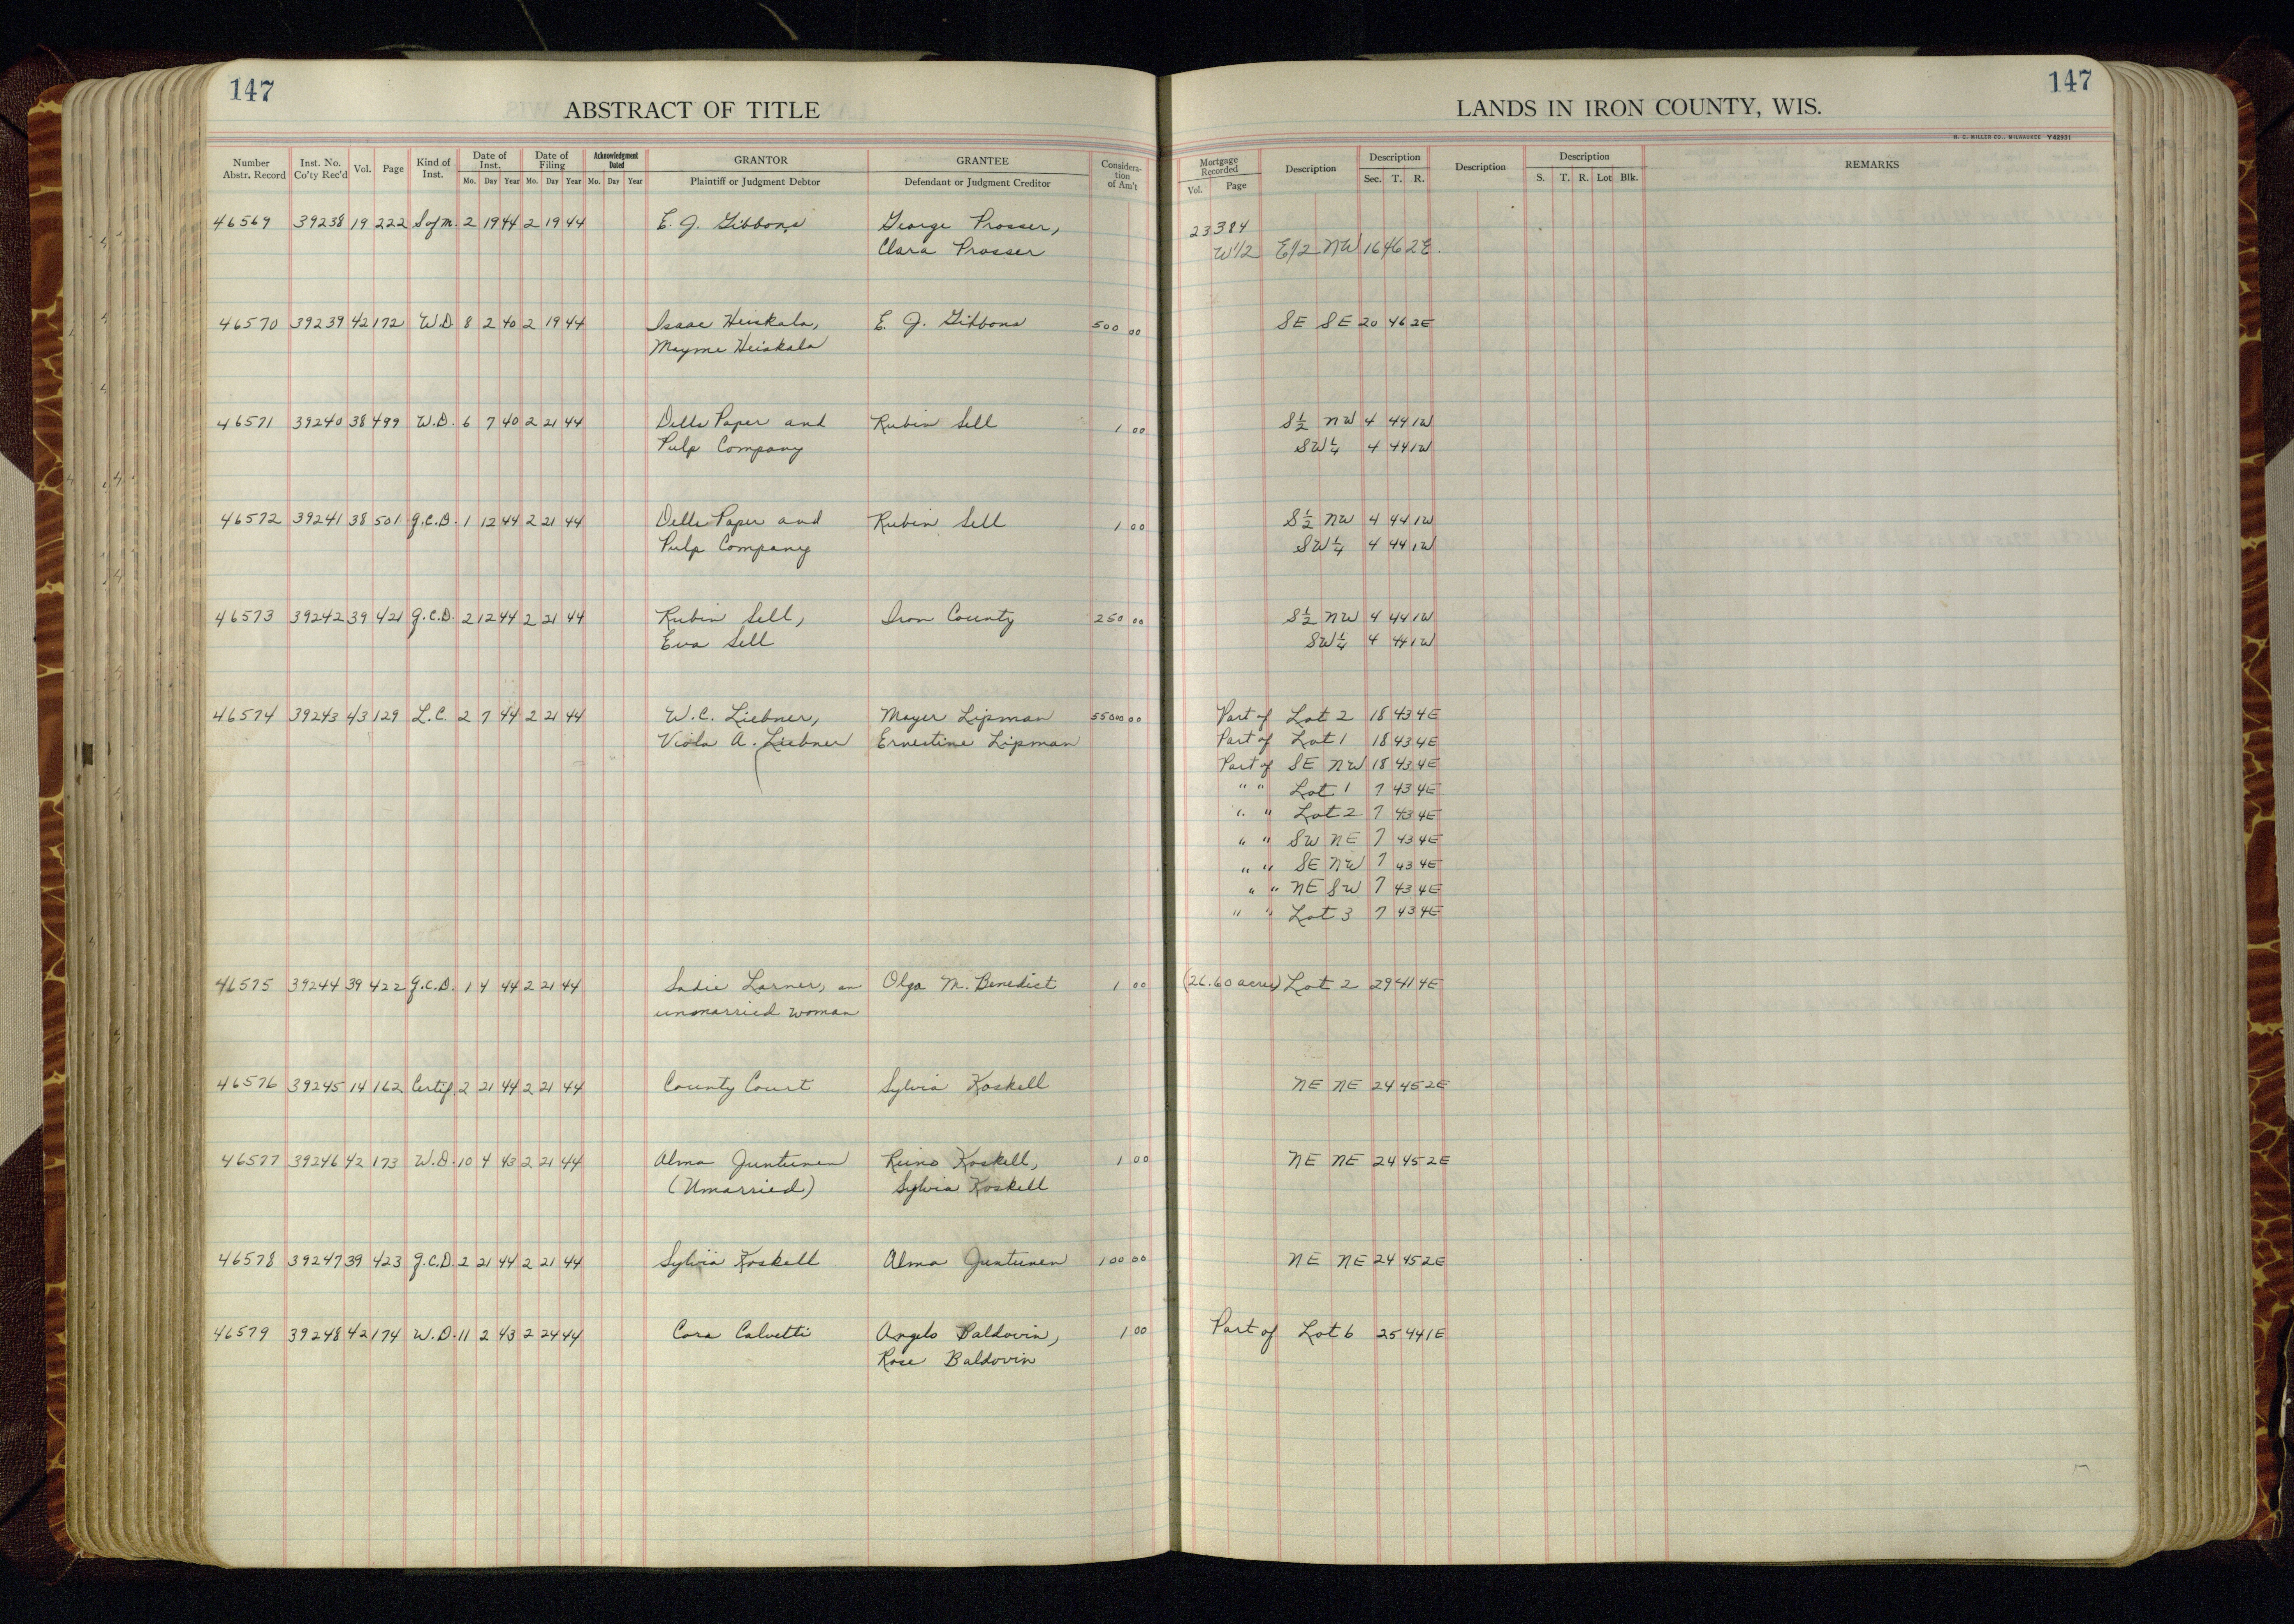 147
147
ABSTRACT OF TITLE
LANDS IN IRON COUNTY, WIS.
H. C. MILLER CO., MILWAUKEE Y42931
Number Abstr. Record
Inst. No. Co'ty Rec'd
Vol.
Page
Kind of Inst.
Date of Inst.
Mo. Day Year
Date of Filing
Mo. Day Year
Acknowledgment Dated
Mo. Day Year
GRANTOR
Plaintiff or Judgment Debtor
GRANTEE
Defendant or Judgment Creditor
Consideration of Am't
Mortgage Recorded
Vol. Page
Description
Description
Sec. T. R.
Description
Description
S. T. R. Lot Blk.
REMARKS
46569 39238 19 222 S of M. 2 19 44 2 19 44 E. J. Gibbons George Prosser, 23 384
Clara Prosser W1/2 E1/2 NW 16 46 2E.
46570 39239 42 172 W.D. 8 2 40 2 19 44 Isaac Heiskala, E. J. Gibbons 500 00 SE SE 20 46 2E
Mayme Heiskala
46571 39240 38 499 W.D. 6 7 40 2 21 44 Dells Paper and Rubin Sell 1 00 S½ NW 4 44 1W
Pulp Company SW¼ 4 44 1W
46572 39241 38 501 q.C.D. 1 12 44 2 21 44 Dells Paper and Rubin Sell 1 00 S½ NW 4 44 1W
Pulp Company SW¼ 4 44 1W
46573 39242 39 421 q.C.D. 2 12 44 2 21 44 Rubin Sell, Iron County 250 00 S½ NW 4 44 1W
Eva Sell SW¼ 4 44 1W
46574 39243 43 129 L.C. 2 7 44 2 21 44 W.C. Liebner, Mayer Lipman 55000 00 Part of Lot 2 18 43 4E
Viola A. Liebner Ernestine Lipman Part of Lot 1 18 43 4E
Part of SE NW 18 43 4E
" " Lot 1 7 43 4E
" " Lot 2 7 43 4E
" " SW NE 7 43 4E
" " SE NW 7 43 4E
" " NE SW 7 43 4E
" " Lot 3 7 43 4E
46575 39244 39 422 q.C.D. 1 4 44 2 21 44 Sadie Larner, an Olga M. Benedict 1 00 (26.60 acres) Lot 2 29 41 4E
unmarried woman
46576 39245 14 162 Certif. 2 21 44 2 21 44 County Court Sylvia Koskell NE NE 24 45 2E
46577 39246 42 173 W.D. 10 4 43 2 21 44 Alma Juntunen Reino Koskell, 1 00 NE NE 24 45 2E
(Unmarried) Sylvia Koskell
46578 39247 39 423 q.C.D. 2 21 44 2 21 44 Sylvia Koskell Alma Juntunen 100 00 NE NE 24 45 2E
46579 39248 42 174 W.D. 11 2 43 2 24 44 Cora Calvetti Angelo Baldovin, 1 00 Part of Lot 6 25 44 1E
Rose Baldovin